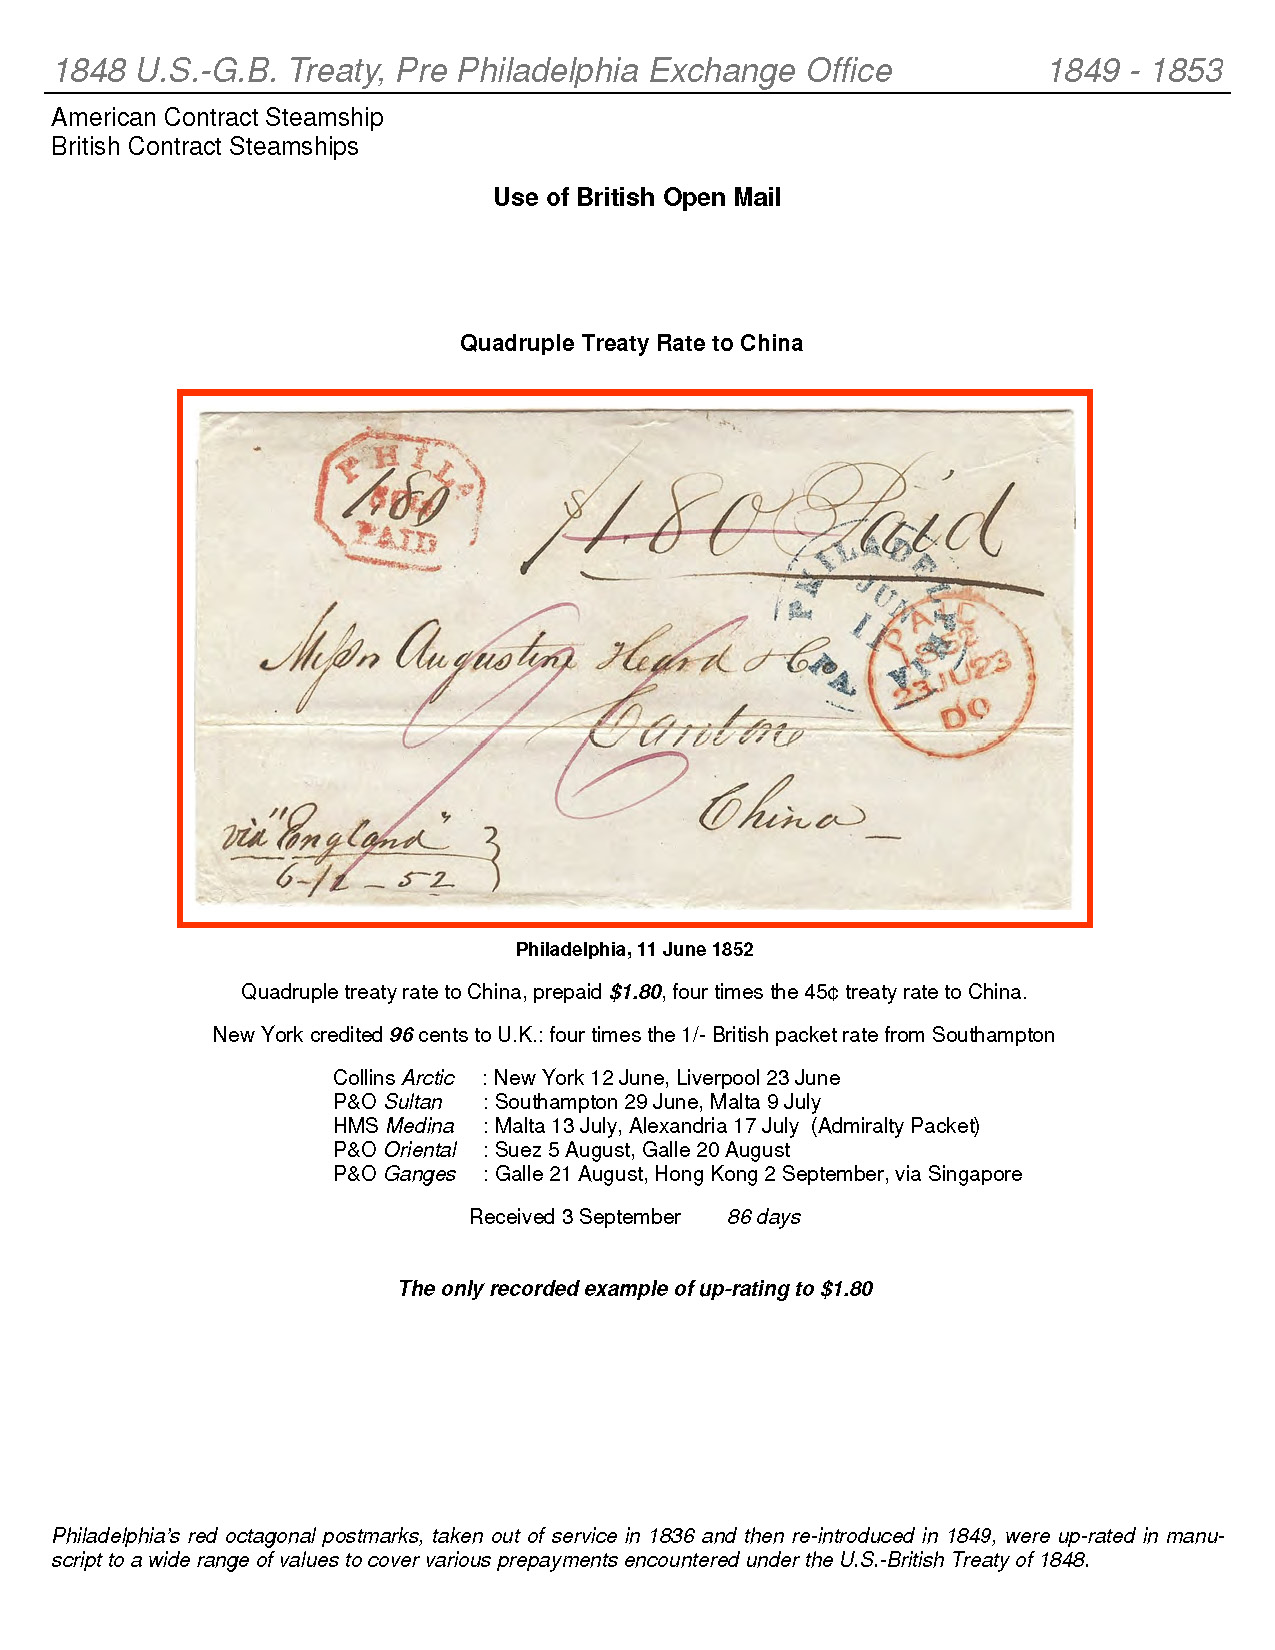 1848 U.S.-G.B. Treaty, Pre Philadelphia Exchange Office 1849 - 1853
American Contract Steamship
British Contract Steamships
Use of British Open Mail
Quadruple Treaty Rate to China
PHILA
PAID
1.80
$1.80 Paid
PHILADELPHIA PA.
JUN
11
PAID
1852
23JU23
Messrs Augustine Heard & Co
Canton
China
96
via "England"
6-12-52
Philadelphia, 11 June 1852
Quadruple treaty rate to China, prepaid $1.80, four times the 45¢ treaty rate to China.
New York credited 96 cents to U.K.: four times the 1/- British packet rate from Southampton
Collins Arctic : New York 12 June, Liverpool 23 June
P&O Sultan : Southampton 29 June, Malta 9 July
HMS Medina : Malta 13 July, Alexandria 17 July (Admiralty Packet)
P&O Oriental : Suez 5 August, Galle 20 August
P&O Ganges : Galle 21 August, Hong Kong 2 September, via Singapore
Received 3 September 86 days
The only recorded example of up-rating to $1.80
Philadelphia's red octagonal postmarks, taken out of service in 1836 and then re-introduced in 1849, were up-rated in manu-
script to a wide range of values to cover various prepayments encountered under the U.S.-British Treaty of 1848.